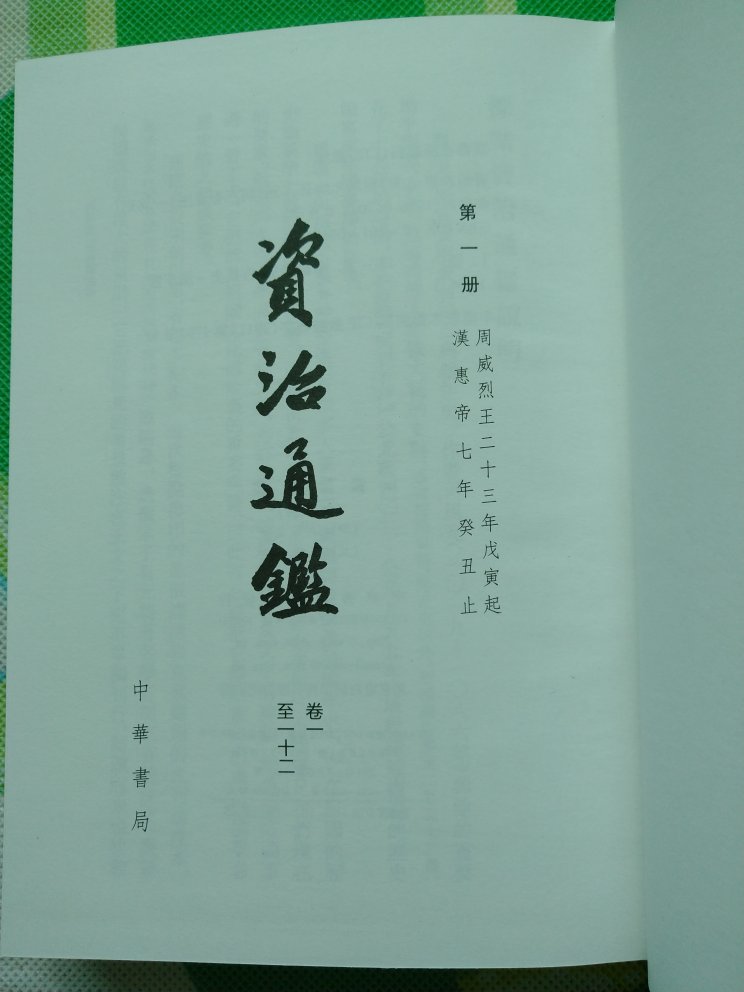 第一册
周威烈王二十三年戊寅起
漢惠帝七年癸丑止
資治通鑑
卷一
至一十二
中華書局